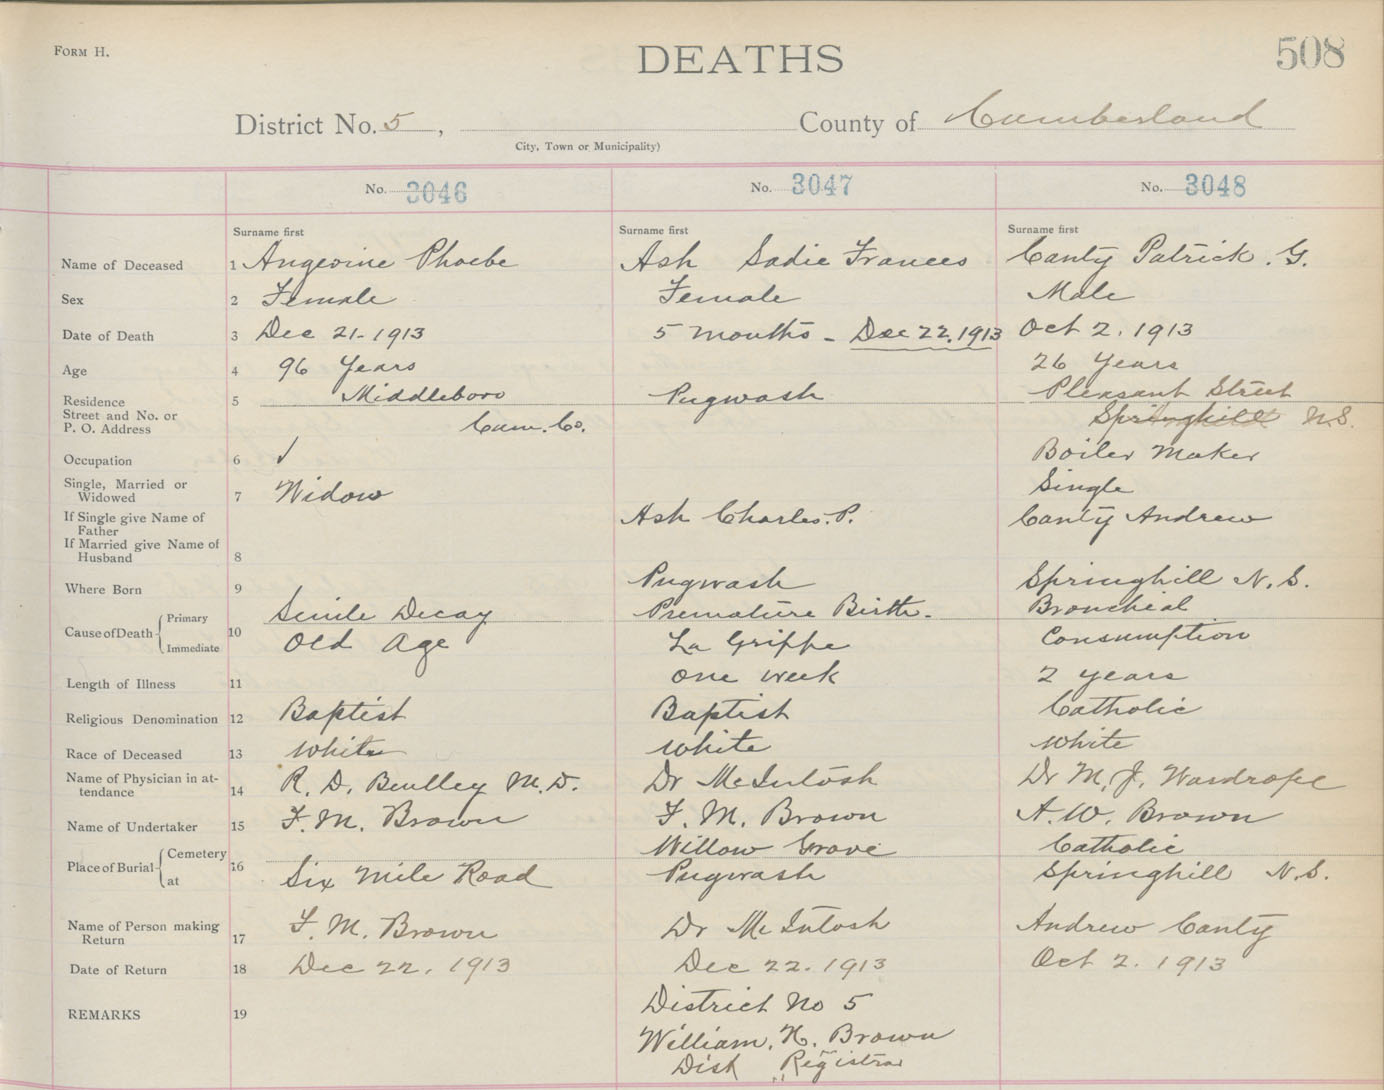 FORM H.
DEATHS
508
District No. 5, County of Cumberland
City, Town or Municipality)
No. 3046 No. 3047 No. 3048
Surname first Surname first Surname first
Name of Deceased 1 Angevine Phoebe Ash Sadie Frances Canty Patrick. G.
Sex 2 Female Female Male
Date of Death 3 Dec 21-1913 5 months - Dec 22. 1913 Oct 2. 1913
Age 4 96 Years 26 Years
Residence 5 Middleboro Pugwash Pleasant Street
Street and No. or
P. O. Address Cum. Co. Springhill N.S.
Occupation 6 ✓ Boiler Maker
Single, Married or
Widowed 7 Widow Single
If Single give Name of
Father Ash Charles. P. Canty Andrew
If Married give Name of
Husband 8
Where Born 9 Pugwash Springhill N.S.
Cause of Death 10 Primary Senile Decay Premature Birth. Bronchial
Immediate Old Age La Grippe Consumption
Length of Illness 11 one week 2 years
Religious Denomination 12 Baptist Baptist Catholic
Race of Deceased 13 White White White
Name of Physician in at-
tendance 14 R. D. M.D. Dr McIntosh Dr M. J. Wardrope
Name of Undertaker 15 F. M. Brown F. M. Brown A. W. Brown
Place of Burial 16 Cemetery Willow Grove Catholic
at Six Mile Road Pugwash Springhill N.S.
Name of Person making
Return 17 F. M. Brown Dr McIntosh Andrew Canty
Date of Return 18 Dec 22. 1913 Dec 22. 1913 Oct 2. 1913
REMARKS 19 District No 5
William. H. Brown
Dist Registrar